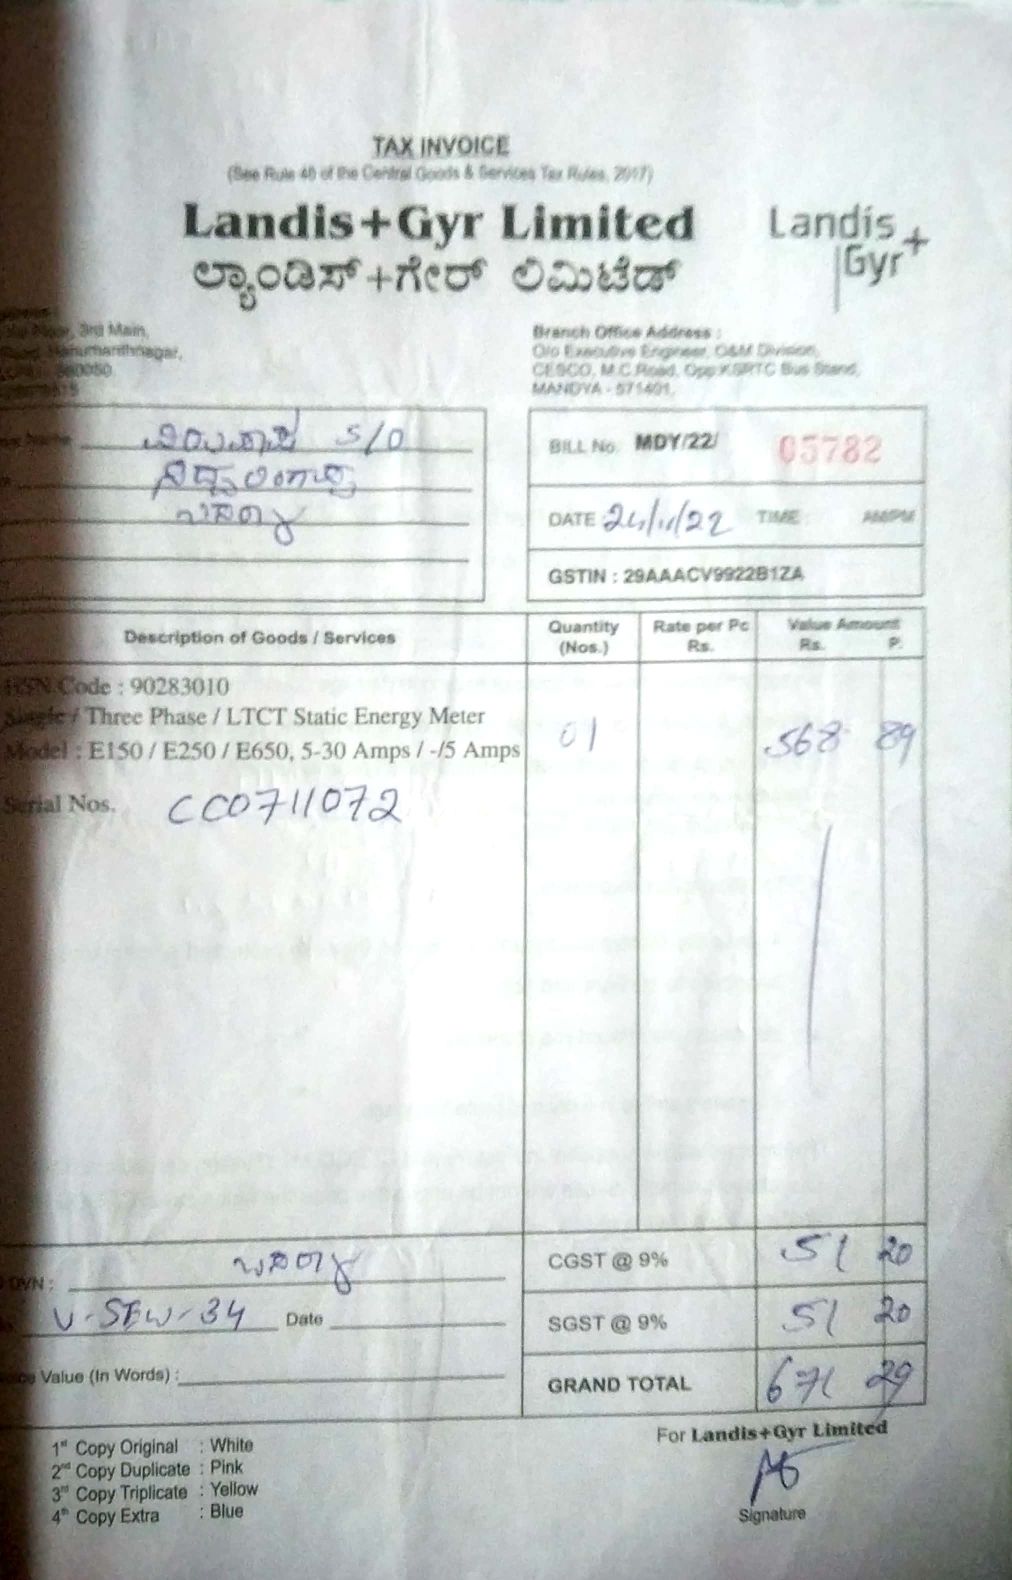 TAX INVOICE
(See Rule 46 of the Central Goods & Services Tax Rules, 2017)
Landis+Gyr Limited
ಲ್ಯಾಂಡಿಸ್+ಗೇರ್ ಲಿಮಿಟೆಡ್
Landis
Gyr+
3rd Main,
Hanumanthnagar,
Branch Office Address :
O/o Executive Engineer, O&M Division,
CESCO, M.C.Road, Opp.KSRTC Bus Stand,
MANDYA - 571401.
S/O
BILL No. MDY/22/ 05782
DATE 24/11/22 TIME : AM/PM
GSTIN : 29AAACV9922B1ZA
Description of Goods / Services
Quantity (Nos.)
Rate per Pc Rs.
Value Amount
Rs. P.
HSN Code : 90283010
Single / Three Phase / LTCT Static Energy Meter
Model : E150 / E250 / E650, 5-30 Amps / -/5 Amps
01 568 89
Serial Nos. CC0711072
DVN :
V-SEW-34 Date
Value (In Words) :
CGST @ 9% 51 20
SGST @ 9% 51 20
GRAND TOTAL 671 29
1st Copy Original : White
2nd Copy Duplicate : Pink
3rd Copy Triplicate : Yellow
4th Copy Extra : Blue
For Landis+Gyr Limited
Signature